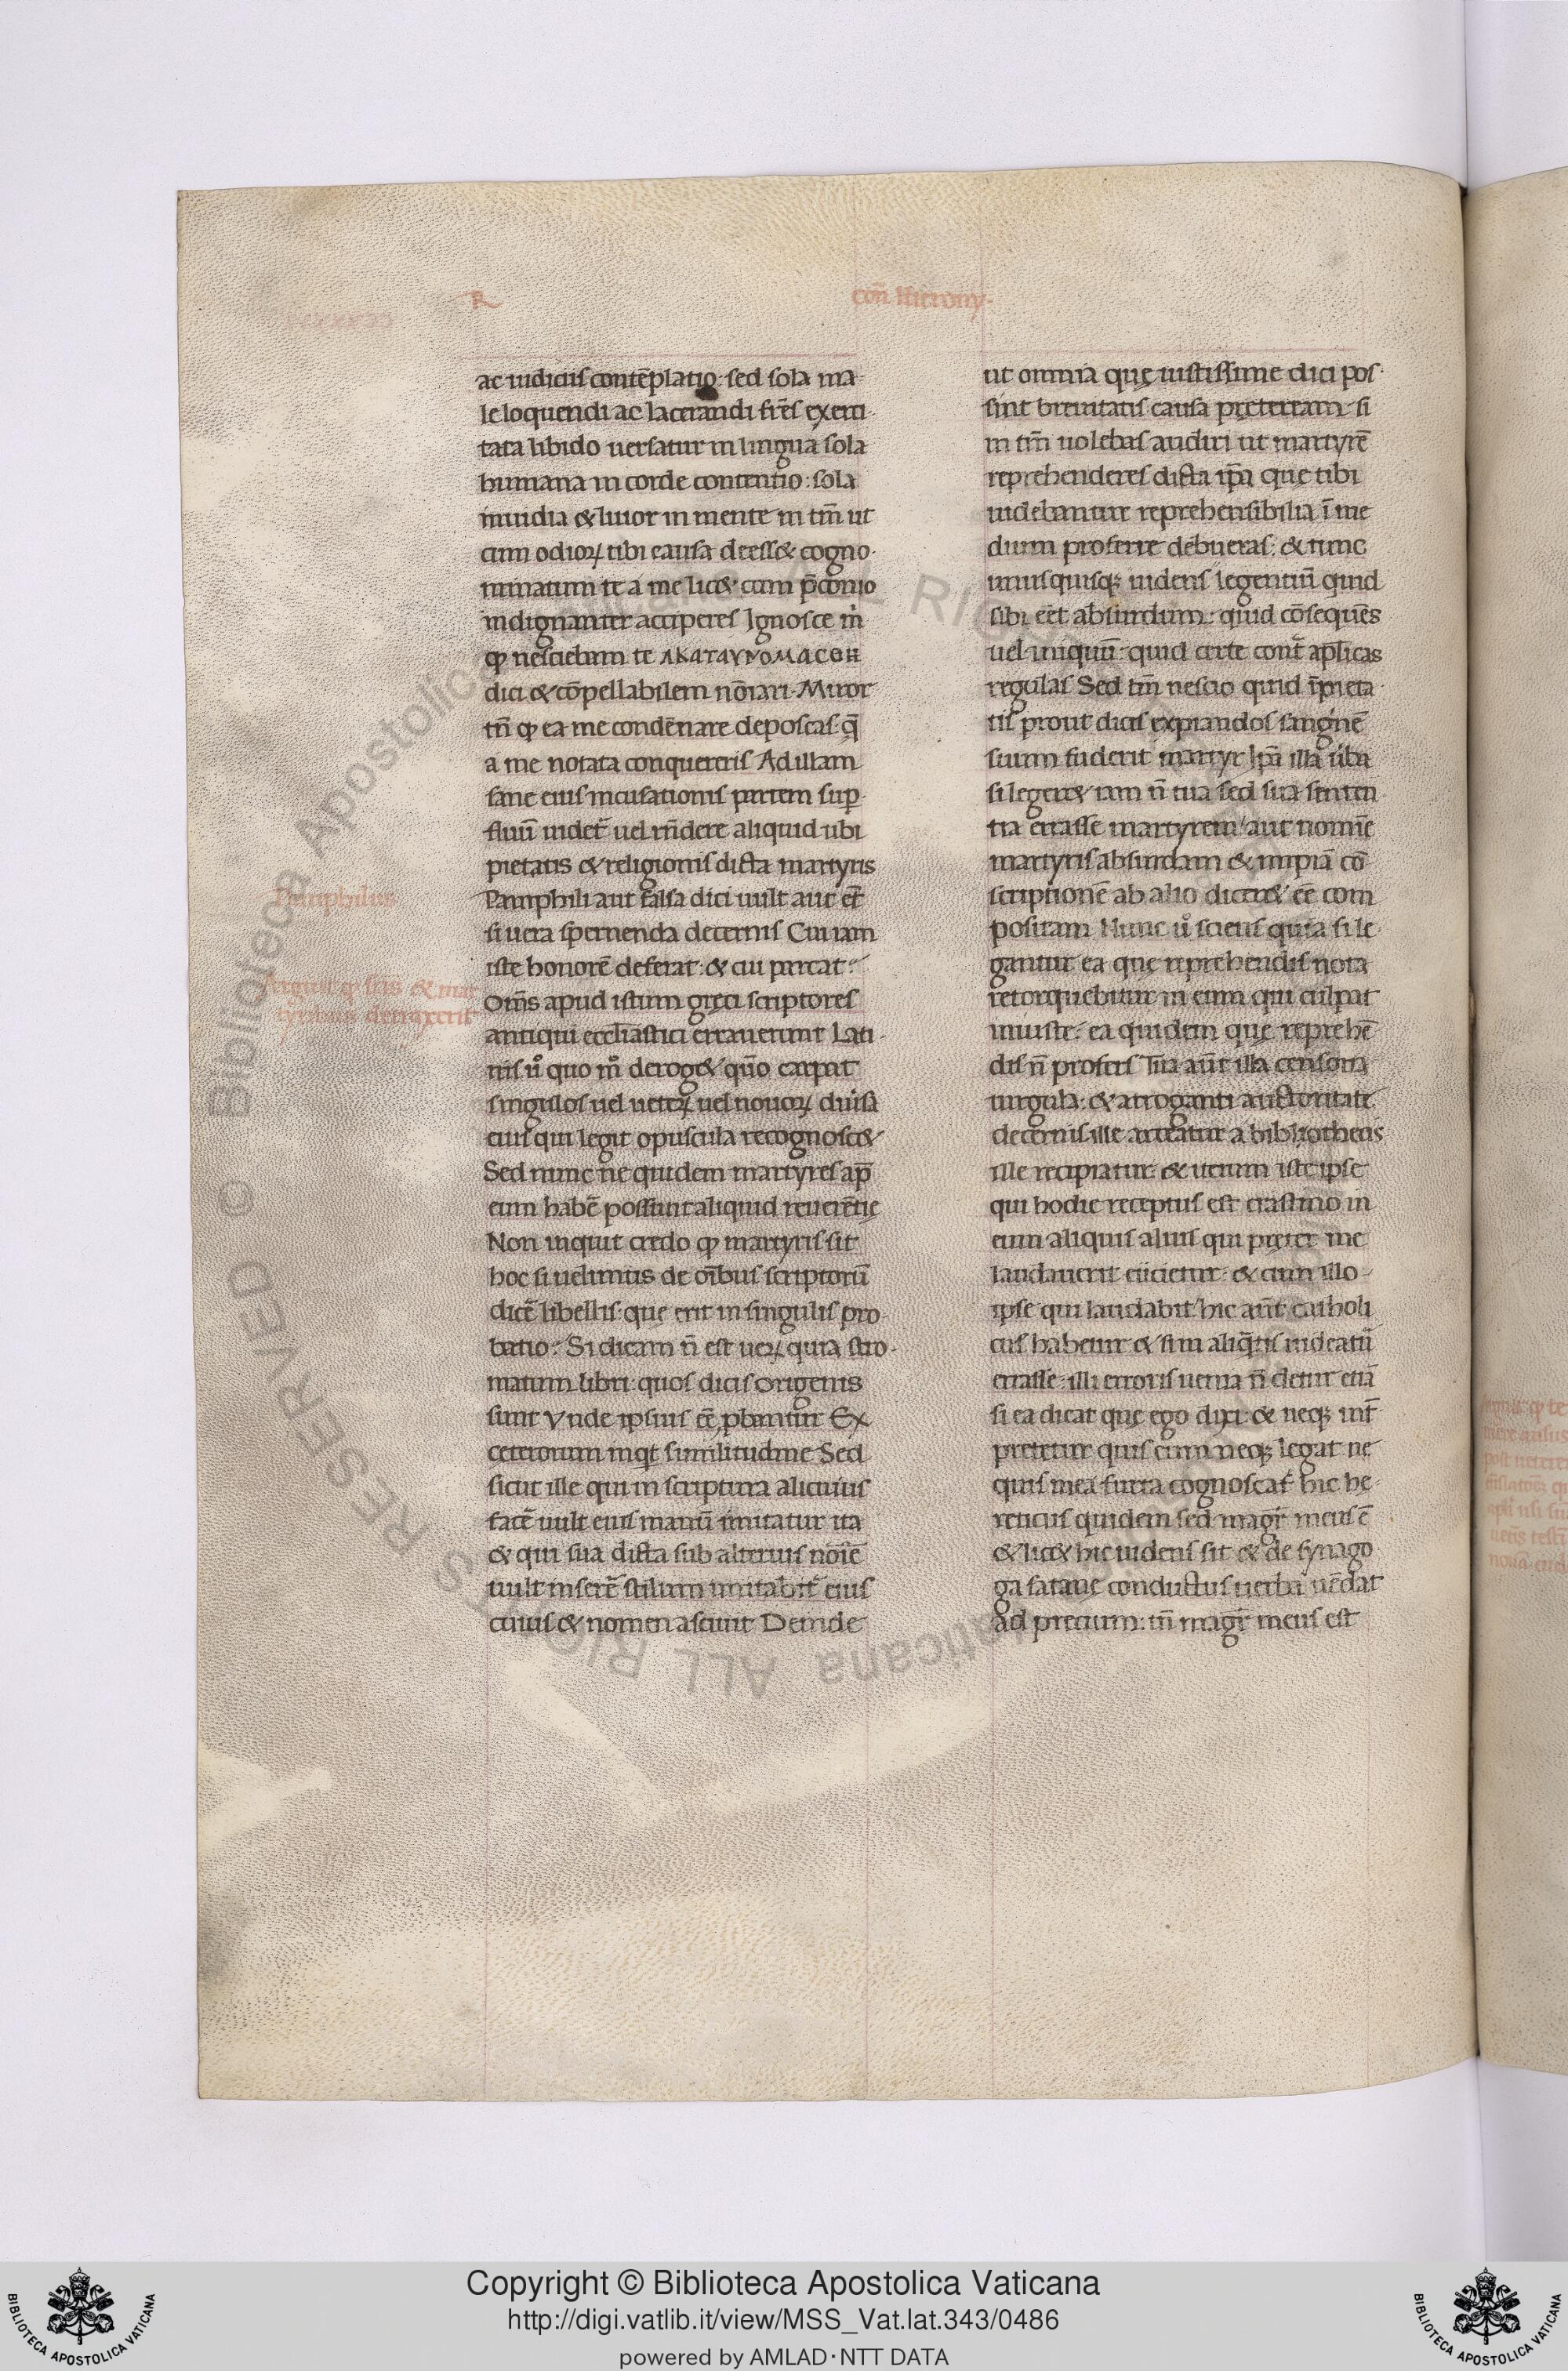 R
con̄ Hierony·
ac iudiciis contēplatio: sed sola ma
le loquendi ac lacerandi fr̄es exerci·
tata libido uersatur in lingua sola
humana in corde contentio: sola
inuidia & liuor in mente in tm̄ ut
cum odioꝝ tibi causa deess& cogno·
minatum te a me lic& cum p̄conio
indignanter acciperes Ignosce m̓
ꝙ nesciebam te
dici & cōpellabilem nōiari. Miror
tn̄ ꝙ ea me condēnare deposcas: q̄
a me notata conquereris Ad illam
sane eius incusationis partem sup̱·
fluū uidet᷑ uel rn̄dere aliquid ubi
pietatis & religionis dicta martyris
Pamphili aut falsa dici uult aut et̄
si uera spernenda decernis Cui iam
iste honorē deferat: & cui parcat?
Om̄s apud istum gręci scriptores
antiqui eccliastici errauerunt Lati·
nis u̓ quo m̊ derog& qūo carpat
singulos uel ueteꝝ uel nouoꝝ diu̓sa
eius qui legit opuscula recognosc&
Sed nunc ne quidem martyres ap̄
eum habē possunt aliquid reuerētię
Non inquit credo ꝙ martyris sit
hoc si uelimus de oībus scriptorū
dicē libellis: quę erit in singulis pro·
batio? Si dicam n̄ est ueꝝ quia stro·
matum libri: quos dicis origenis
sunt Vnde ipsius eē ꝓbantur Ex
ceterorum inqt̄ similitudine Sed
sicut ille qui in scriptura alicuius
facē uult eius manū imitatur ita
& qui sua dicta sub alterius noīe
uult inserē stilum imitabit᷑ eius
cuius & nomen asciuit Deinde
Pamphilus
Arguit ꝙ sc̄is & mar
tyribus detraxerit
ut omnia quę iustissime dici pos·
sint breuitatis causa pręteream si
in tm̄ uolebas audiri ut martyrē
reprehenderes dicta ip̄a que tibi
uidebantur reprehensibilia ī me
dium proferre debueras: & tunc
unusquisqꝫ uidens legentiū quid
sibi eēt absurdum: quid cōsequēs
uel iniquū: quid certe cont᷑ ap̄licas
regulas Sed tm̄ nescio quid īpieta·
tis prout dicis expiandos sanguinē
suum fuderit martyr Ip̄a illa u̓ba
si leger& iam n̄ tua sed sua senten
tia errasse martyrem aut nomīe
martyris absurdam & impiā cō
scriptionē ab alio dicer& eē com
positam Nunc u̓ sciens quia si le·
gantur ea quę rp̄rehendis nota
retorquebitur in eum qui culpat
iniuste: ea quidem quę reprehē
dis n̄ profers Tua aūt illa censoria
uirgula: & arroganti auctoritate
decernis ille arceatur a bibliothecis
ille recipiatur: & uerum iste ipse
qui hodie receptus est crastino in
eum aliquis alius qui pręter me
laudauerit eiicietur: & cum illo
ipse qui laudabit hic aūt catholi
cus habetur & si in aliq̓tis uideatū
errasse: illi erroris uenia n̄ detur etiā
si ea dicat quę ego dixi: & neqꝫ int̄·
pretetur quis eum neqꝫ legat ne
quis mea furta cognoscat hic he·
reticus quidem sed mag̓r meus ē
& lic& hic iudeus sit & de synago
ga satane conductus uerba uēdat
ad precium: tn̄ mag̓r meus est
© Biblioteca Apostolica Vaticana ALL RIGHTS RESERVED
Copyright © Biblioteca Apostolica Vaticana
http://digi.vatlib.it/view/MSS_Vat.lat.343/0486
powered by AMLAD·NTT DATA
BIBLIOTECA APOSTOLICA VATICANA
BIBLIOTECA APOSTOLICA VATICANA